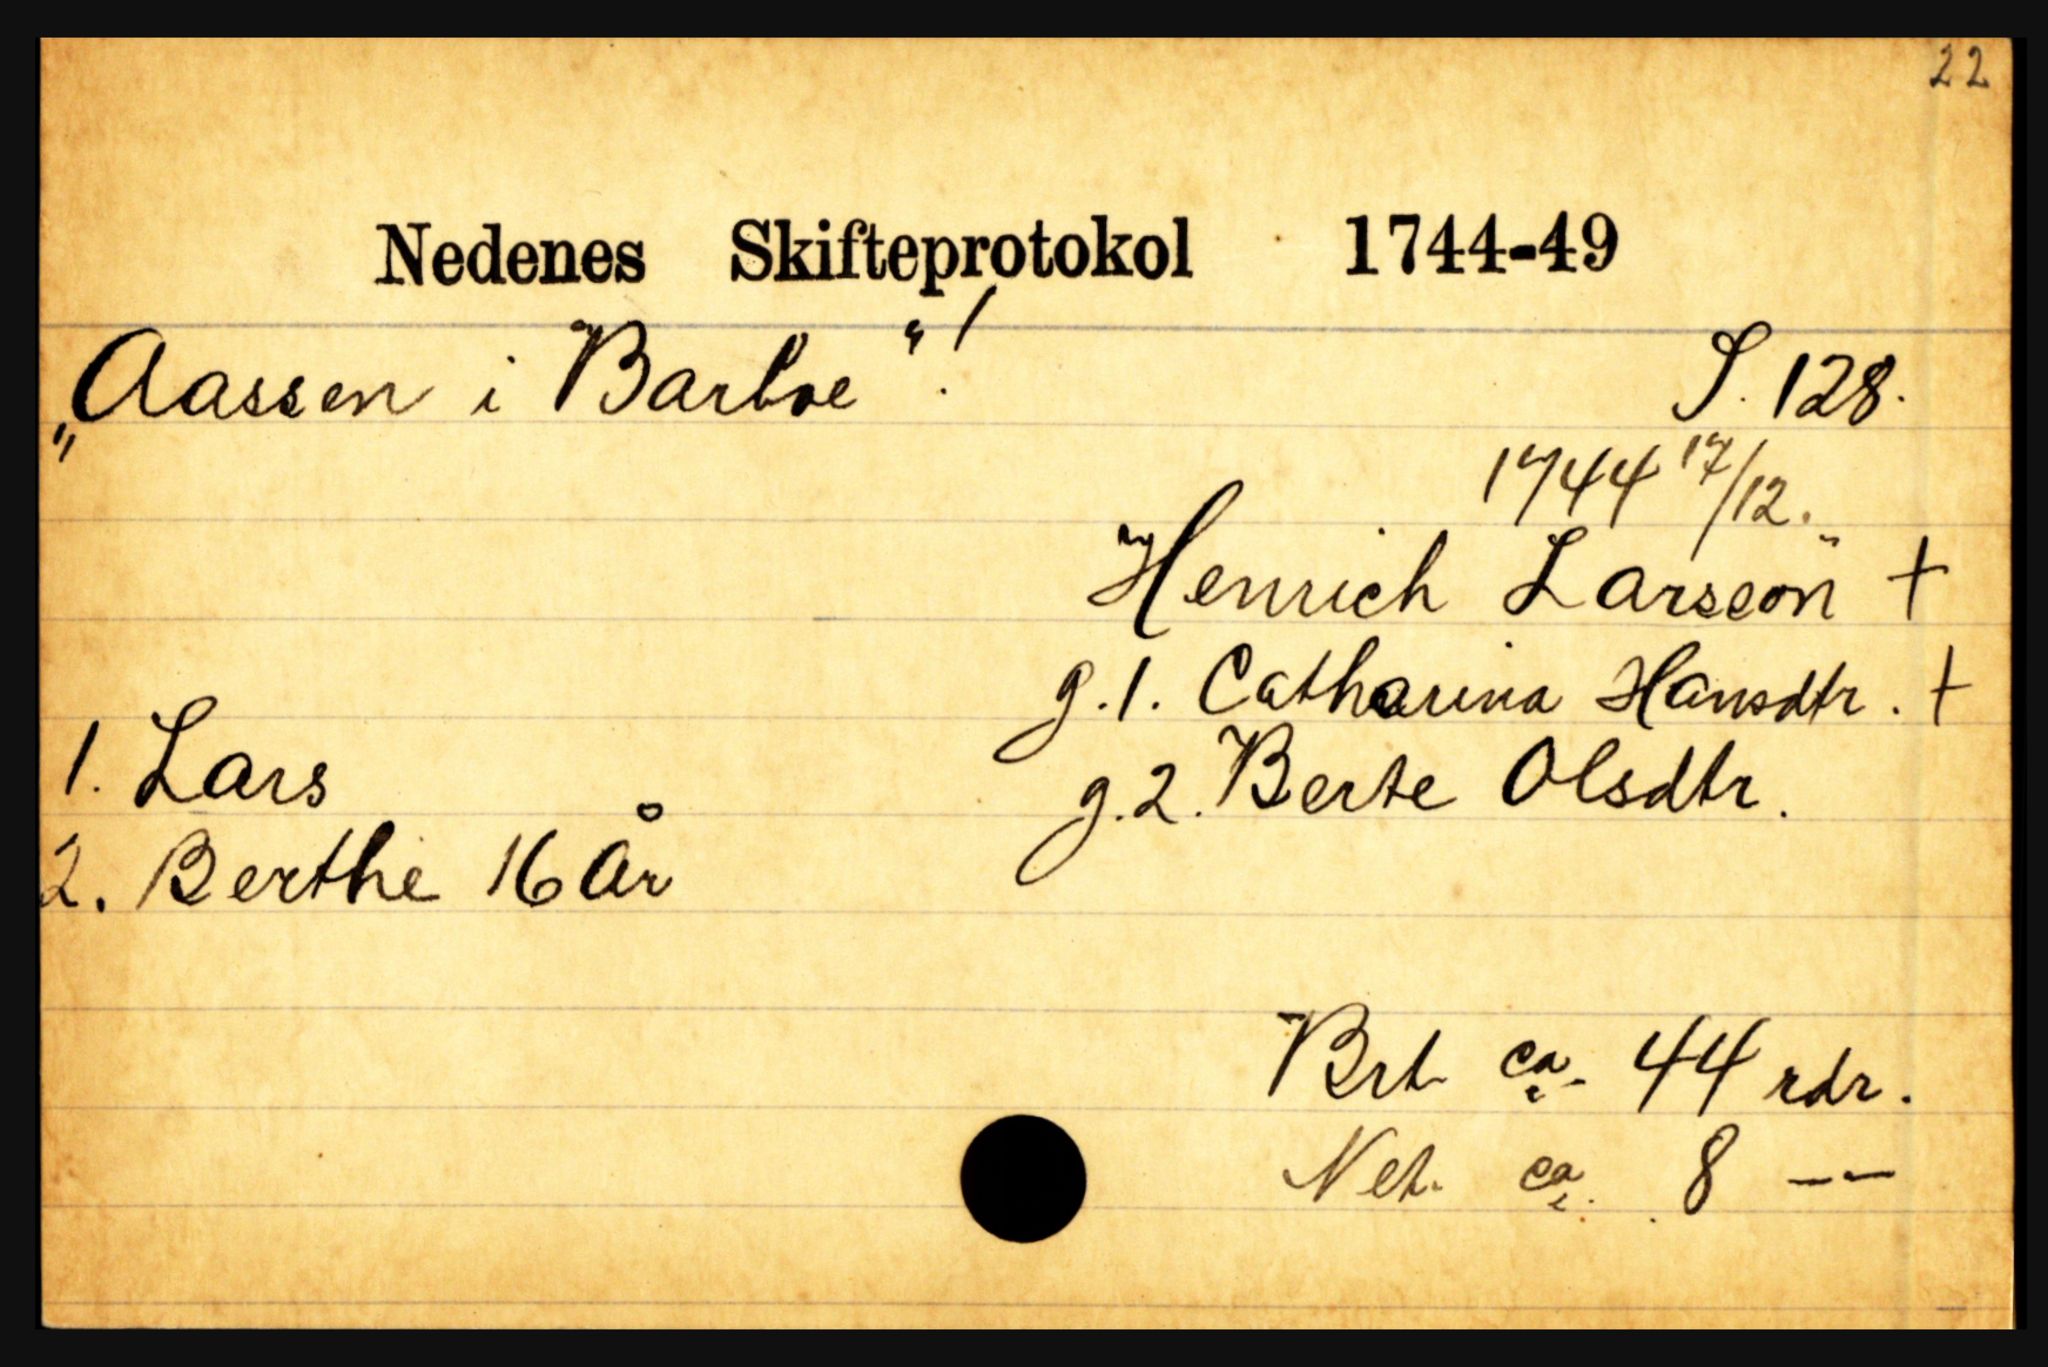 22
Nedenes Skifteprotokol 1744-49
„Aassen i Barboe“!
S. 128.
1744 17/12.
Henrich Larssön †
g.1. Catharina Hansdtr. †
1. Lars
g.2. Berte Olsdtr.
2. Berthe 16 år
Brt ca. 44 rdr.
Net. ca. 8 — —